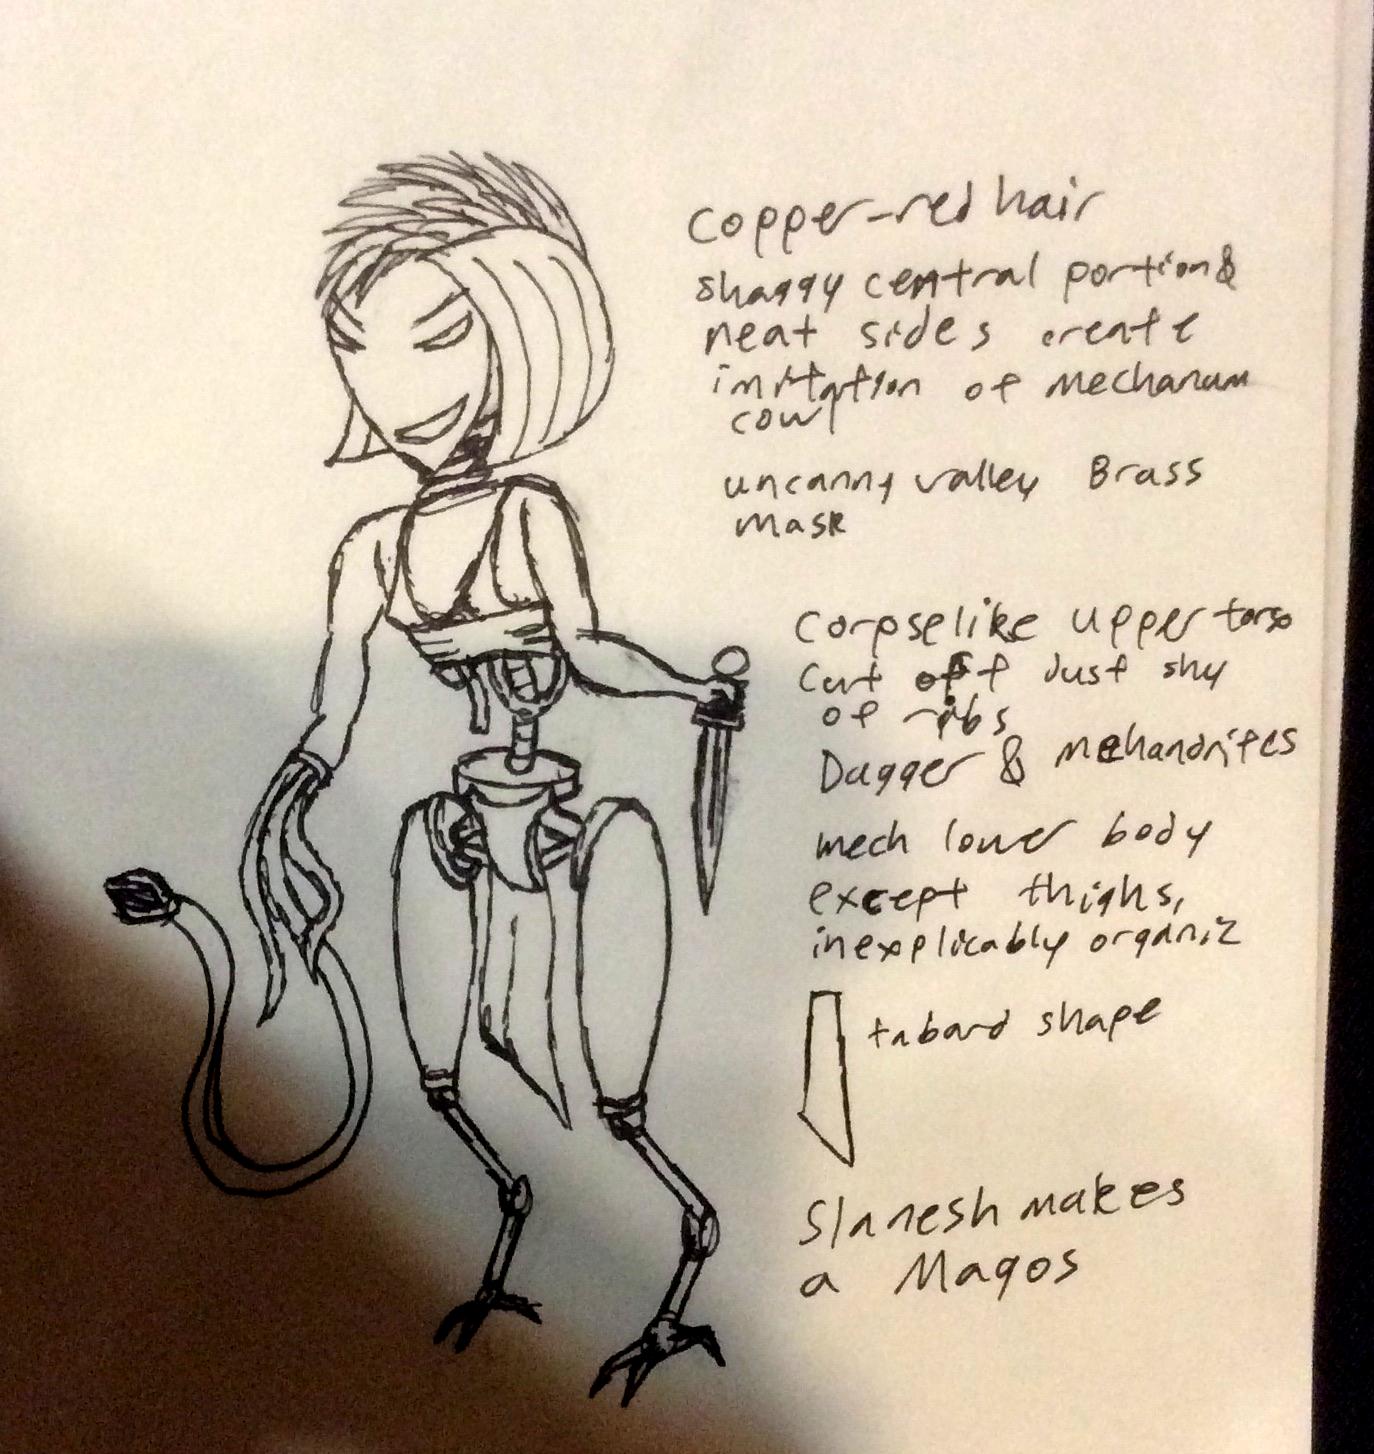 copper-red hair
shaggy central portion &
neat sides create
imitation of mechanum
cowl
uncanny valley Brass
mask
Corpselike upper torso
Cut off just shy
of ribs
Dagger & mechandrites
mech lower body
except thighs,
inexplicably organic
tabard shape
Slanesh makes
a Magos